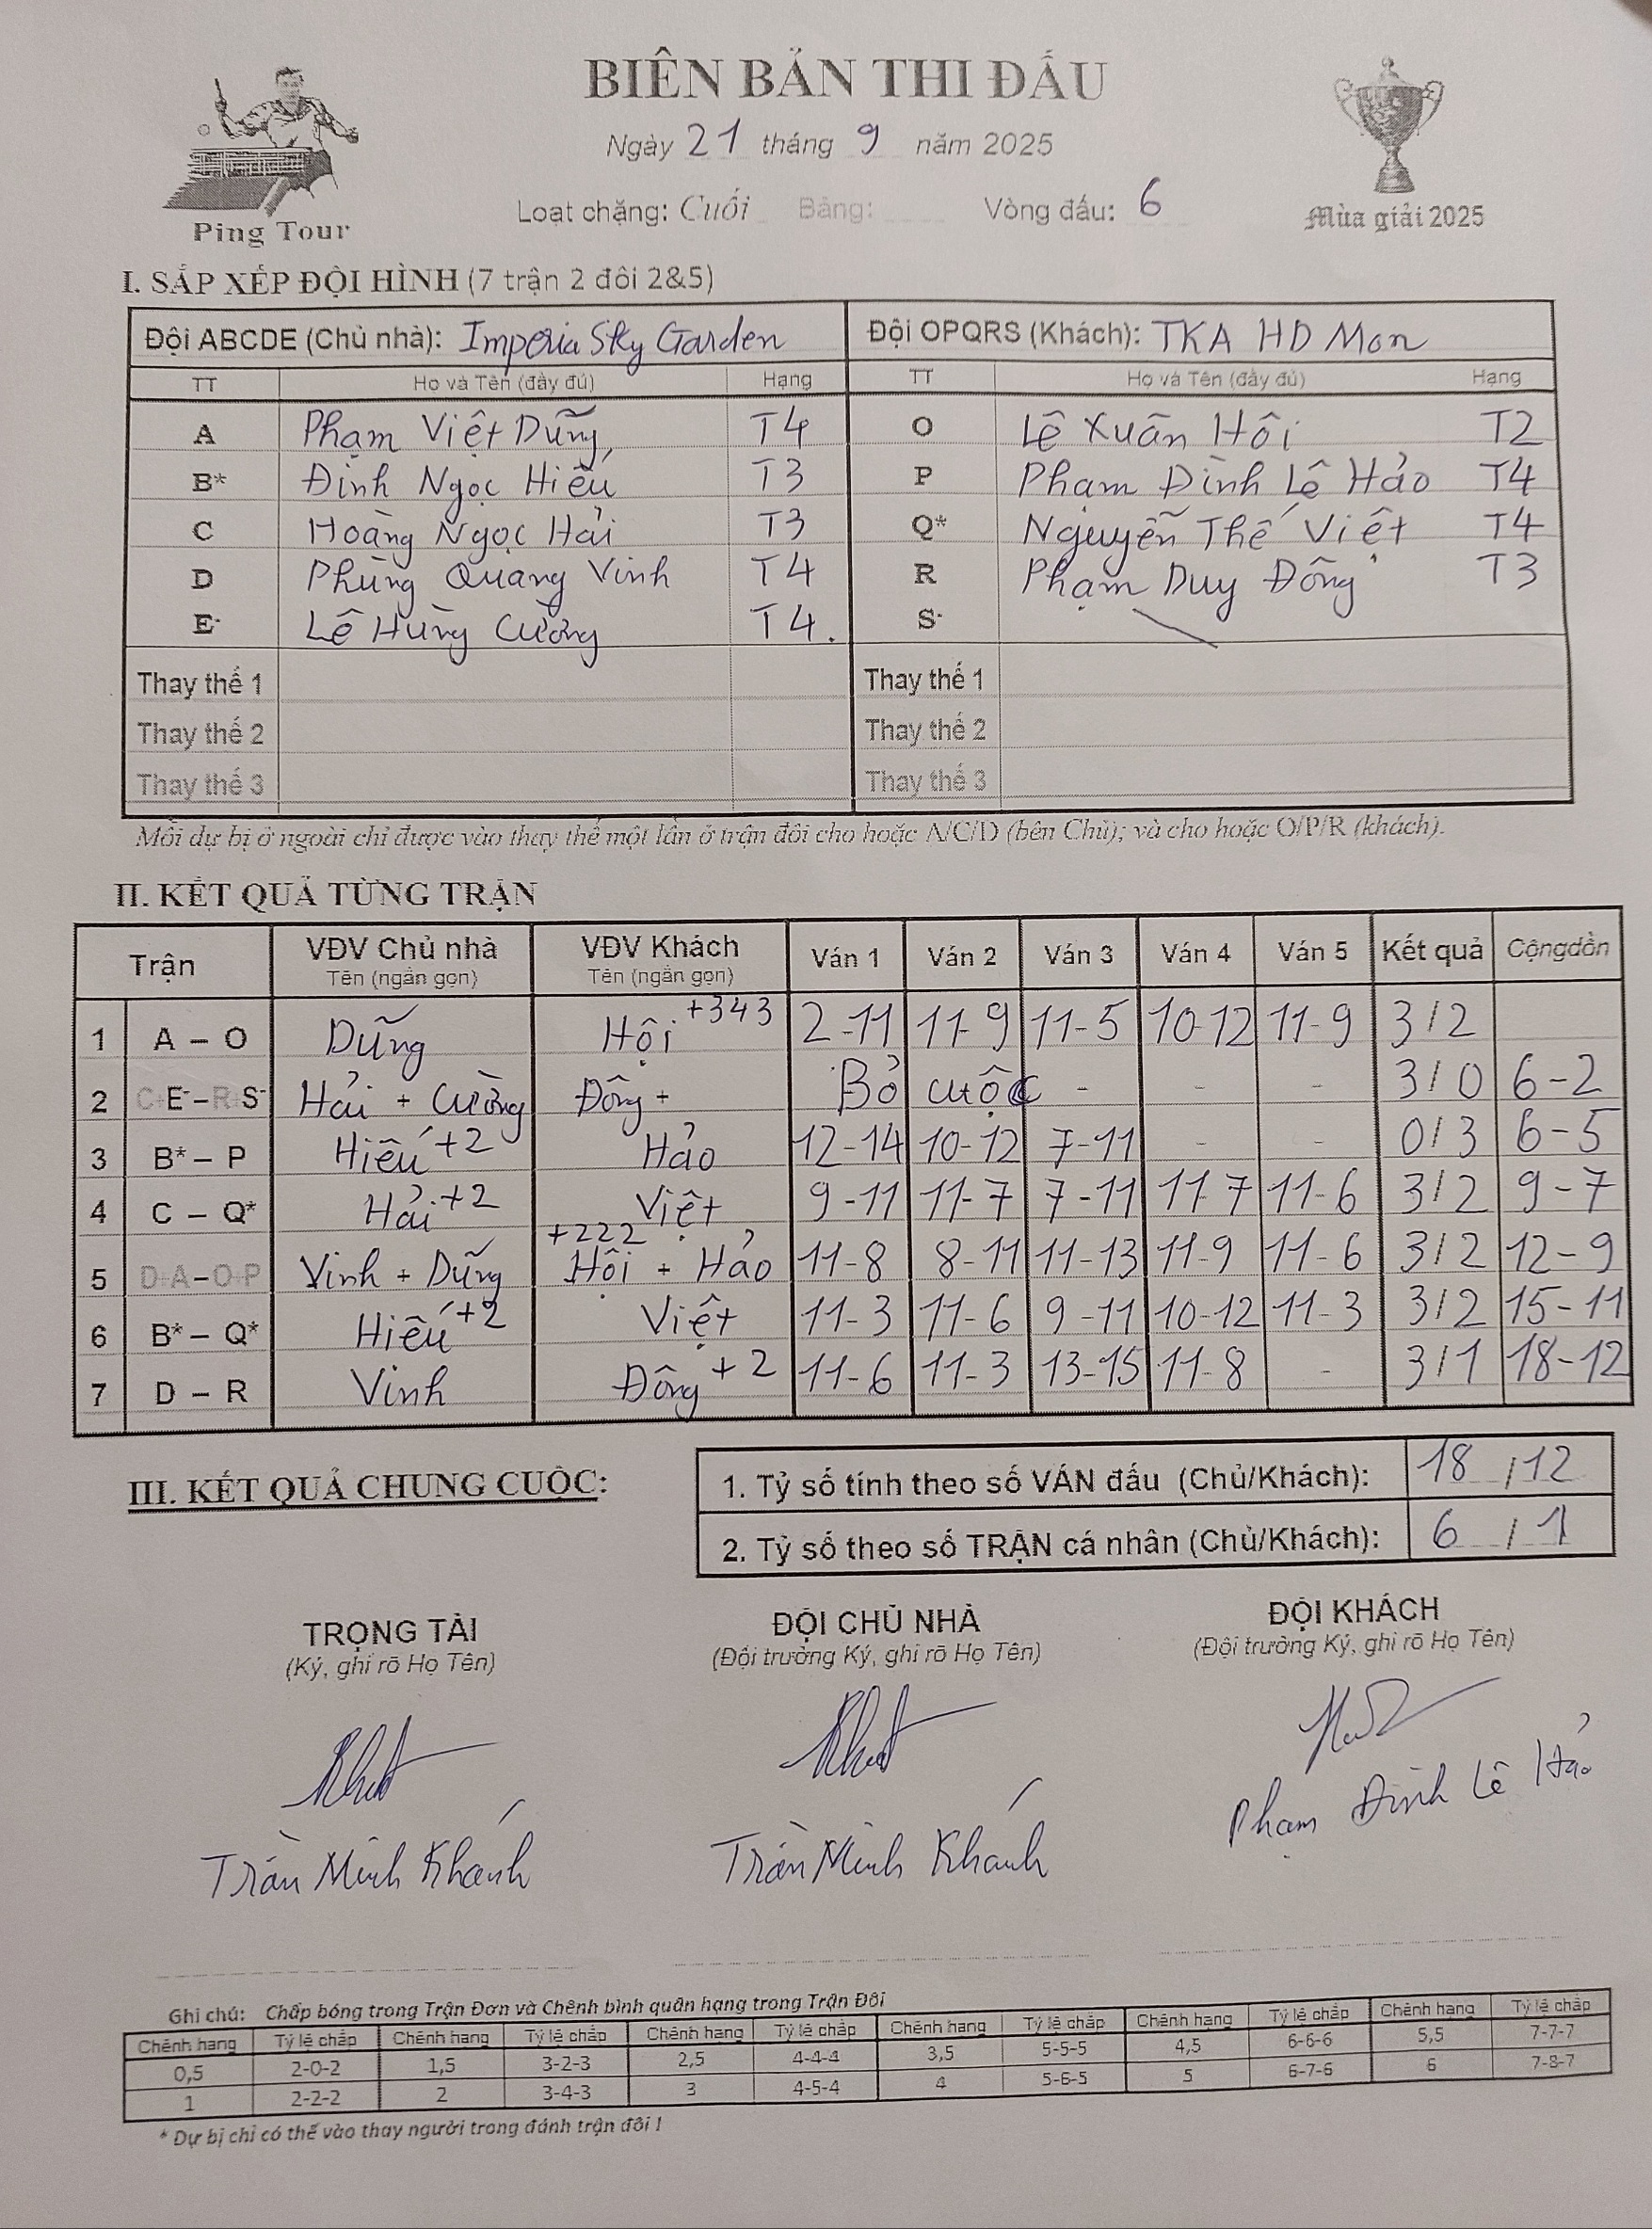 BIÊN BẢN THI ĐẤU
Ngày 21 tháng 9 năm 2025
Loạt chặng: Cuối Bảng: Vòng đấu: 6
Ping Tour
Mùa giải 2025
I. SẮP XẾP ĐỘI HÌNH (7 trận 2 đôi 2&5)
Đội ABCDE (Chủ nhà): Imperia Sky Garden Đội OPQRS (Khách): TKA HD Mon
TT Họ và Tên (đầy đủ) Hạng TT Họ và Tên (đầy đủ) Hạng
A Phạm Việt Dũng T4 O Lê Xuân Hôi T2
B* Đinh Ngọc Hiếu T3 P Phạm Đình Lê Hảo T4
C Hoàng Ngọc Hải T3 Q* Nguyễn Thế Việt T4
D Phùng Quang Vinh T4 R Phạm Duy Đông T3
E- Lê Hùng Cường T4. S-
Thay thế 1 Thay thế 1
Thay thế 2 Thay thế 2
Thay thế 3 Thay thế 3
Mỗi dự bị ở ngoài chỉ được vào thay thế một lần ở trận đôi cho hoặc A/C/D (bên Chủ); và cho hoặc O/P/R (khách).
II. KẾT QUẢ TỪNG TRẬN
Trận VĐV Chủ nhà VĐV Khách Ván 1 Ván 2 Ván 3 Ván 4 Ván 5 Kết quả Cộngdồn
Tên (ngắn gọn) Tên (ngắn gọn)
1 A – O Dũng Hội +343 2-11 11-9 11-5 10-12 11-9 3/2
2 C+E- – R+S- Hải + Cường Đông + Bỏ cuộc - - - 3/0 6-2
3 B* – P Hiếu +2 Hảo 12-14 10-12 7-11 - - 0/3 6-5
4 C – Q* Hải +2 Việt 9-11 11-7 7-11 11-7 11-6 3/2 9-7
5 D+A – O+P Vinh + Dũng +222 Hội + Hảo 11-8 8-11 11-13 11-9 11-6 3/2 12-9
6 B* – Q* Hiếu +2 Việt 11-3 11-6 9-11 10-12 11-3 3/2 15-11
7 D – R Vinh Đông +2 11-6 11-3 13-15 11-8 - 3/1 18-12
III. KẾT QUẢ CHUNG CUỘC:
1. Tỷ số tính theo số VÁN đấu (Chủ/Khách): 18 / 12
2. Tỷ số theo số TRẬN cá nhân (Chủ/Khách): 6 / 1
TRỌNG TÀI ĐỘI CHỦ NHÀ ĐỘI KHÁCH
(Ký, ghi rõ Họ Tên) (Đội trưởng Ký, ghi rõ Họ Tên) (Đội trưởng Ký, ghi rõ Họ Tên)
Trần Minh Khánh Trần Minh Khánh Phạm Đình Lê Hảo
Ghi chú: Chấp bóng trong Trận Đơn và Chênh bình quân hạng trong Trận Đôi
Chênh hạng Tỷ lệ chấp Chênh hạng Tỷ lệ chấp Chênh hạng Tỷ lệ chấp Chênh hạng Tỷ lệ chấp Chênh hạng Tỷ lệ chấp Chênh hạng Tỷ lệ chấp
0,5 2-0-2 1,5 3-2-3 2,5 4-4-4 3,5 5-5-5 4,5 6-6-6 5,5 7-7-7
1 2-2-2 2 3-4-3 3 4-5-4 4 5-6-5 5 6-7-6 6 7-8-7
* Dự bị chỉ có thể vào thay người trong đánh trận đôi !